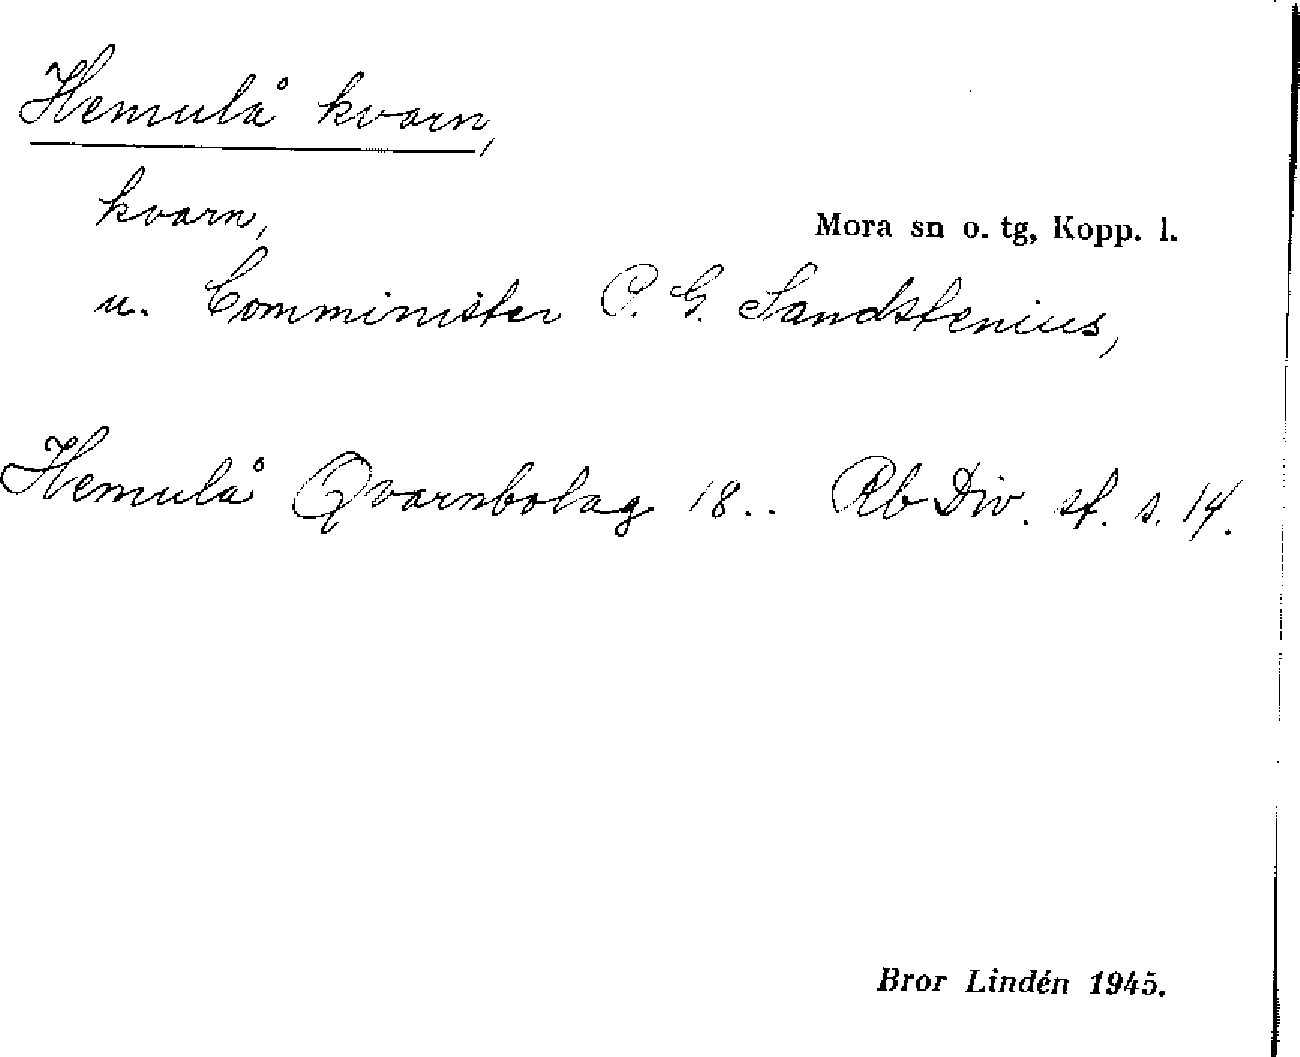 Hemulå kvarn,
kvarn,
Mora sn o. tg, Kopp. l.
u. Comminister P. G. Sandstenius,
Hemulå Qvarnbolag 18.. Rb Div. sf. s. 14.
Bror Lindén 1945.